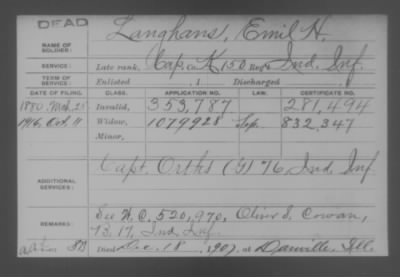 DEAD
NAME OF SOLDIER: Langhans, Emil H.
SERVICE: Late rank, Cap Co. K, 150 Reg't Ind. Inf.
TERM OF SERVICE: Enlisted , 1 Discharged
DATE OF FILING. CLASS. APPLICATION NO. LAW. CERTIFICATE NO.
1880. Mch. 25 Invalid, 353,787 281,494
1916, Oct. 11 Widow, 1079928 832,347
Minor,
ADDITIONAL SERVICES: Capt. Orths (G) 76 Ind. Inf.
REMARKS: See W.O. 520,970, Oliver S. Cowan,
13, 17, Ind. Inf.
Died Dec. 18, 1907, at Danville Ill.